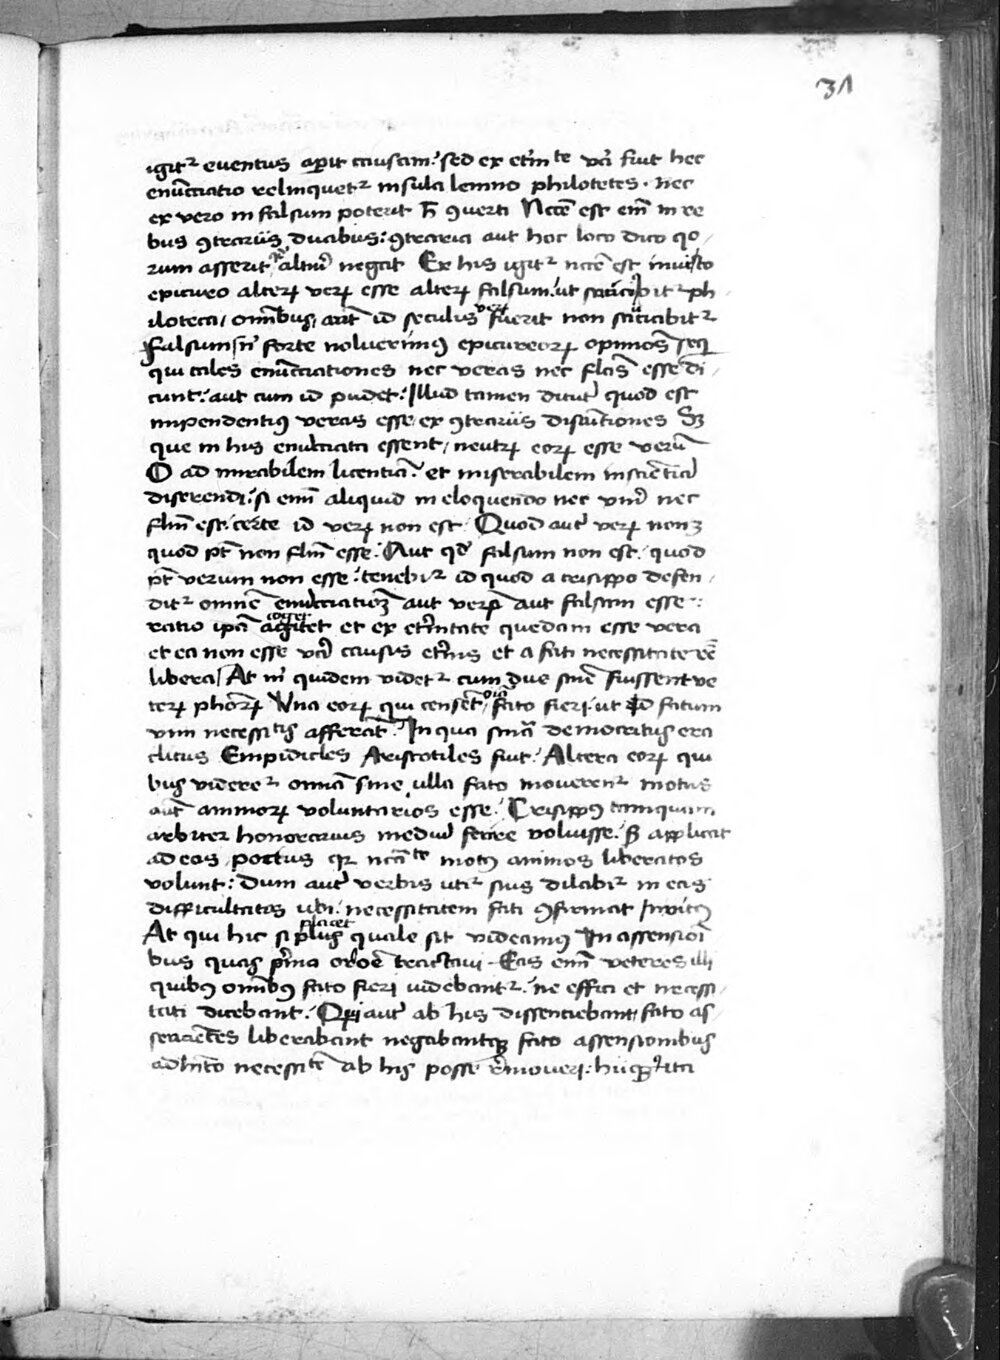 31
igit᷑ eventus aperit causam: sed ex et̄nite vera fuit hec
enūctiatio relinquet᷑ insula lemno philotetes · nec
ex vero in falsum poterit h̄ ꝯverti Nccē est eni̅ in re
bus ꝯtrariis duabus: ꝯtraria aut hoc loco dico qo/
rum asserit altm̄ negat Ex his igit᷑ nccē est invito
epicureo alterꝝ verꝝ esse alterꝝ falsum: ut sauciabit᷑ ph
iloteta/ omībus ant̄ id seculis verū fuerit non sauciabit᷑
falsum/ n̄ forte noluerimꝯ epicureorꝝ opinionē seq̄
qui tales enūctiationes nec veras nec fl̄as esse di/
cunt: aut cum id pudet: Illud tamen dicūt quod est
impendentiꝯ veras esse ex ꝯtrariis disiūctiones Sꝫ
que in his enūciata essent/ neutrꝝ eorꝝ esse verū
O ad mirabilem licentiā: et miserabilem insciētiā
diserendi: si eni̅ aliquid in eloquendo nec verū nec
fl̄m est: certe id verꝝ non est: Quod aut̄ verꝝ non ꝫ
quod pt̄ non fl̄m esse: Aut qd̄ falsum non est: quod
pt̄ verum non esse: tenebit᷑ id quod a crisippo defen/
dit᷑ omnē enūctiationē aut verꝝ aut falsam esse:
ratio ip̄a coget et ex et̄nitate quedam esse vera
et ea non esse vera causis et̄nis et a fati necessitate eē
libera/ At m̄ quidem videt᷑ cum due sn̄ie fuissent ve
terꝝ ph̄orꝝ Una eorꝝ qui censēt oīa fato fieri: ut id fatum
vim necessitis afferāt: In qua sn̄ia democritus era
clitus Empidicles Aristotiles fuit: Altera eorꝝ qui
bus videret᷑ omnia sine ulla fato moverent᷑ motus
aut̄ animorꝝ voluntarios esse: Crisippꝯ tamquam
arbiter honorarius mediū ferire voluisse: sꝫ applicat
ad eas poctus qr̄ nccāte motꝯ animos liberatos
volunt: Dum aut̄ verbis utit᷑ suis dilabit᷑ in eas
difficultatas ubi: necessitatem fati ꝯfirmat Invitꝯ
At qui hic si placet quale sit videamus In assensioni
bus quas prima orōe tractavi Eas eni̅ veteres illi
quibꝯ omībꝯ fato fieri videbant᷑: ne effici et necessi/
tati dicebant: Qui aut̄ ab his dissentiebant/ fato as/
sentiētes liberabant negabantqꝫ fato assensionibus
adhito necessitē ab his posse r̄moveri: hiiqꝫ ita